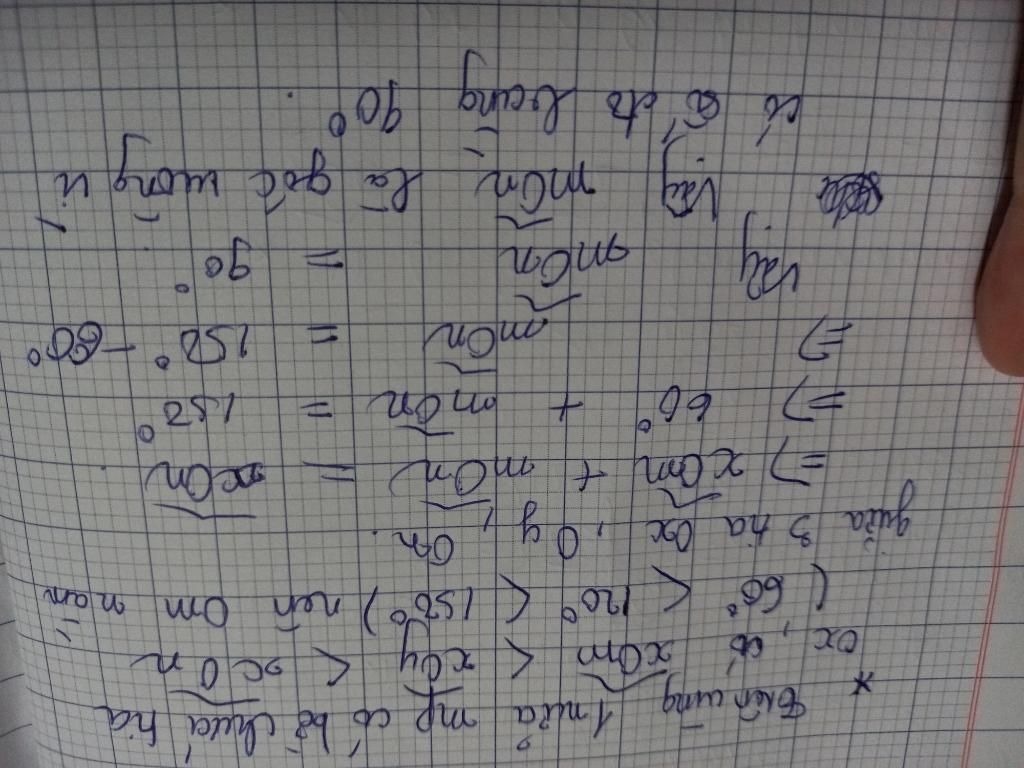 * Trên cùng 1 nửa mp có bờ chứa tia
ox, có xOm < xOy < xOn
( 60° < 120° < 150° ) nên Om nằm
giữa 3 tia Ox, Oy, On.
=> xOm + mOn = xOn
=> 60° + mOn = 150°
=> mOn = 150° - 60°
Vậy mOn = 90°
Vậy mOn là góc vuông vì
có số đo bằng 90°.